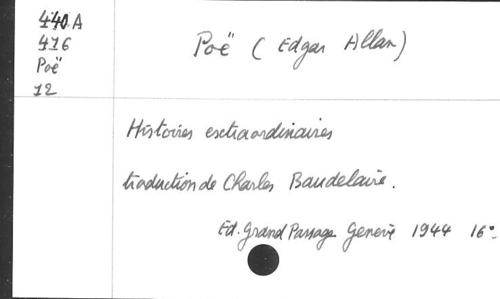 440 A
416
Poë
12
Poë (Edgar Allan)
Histoires extraordinaires
traduction de Charles Baudelaire.
Ed. Grand Passage Genève 1944 16°